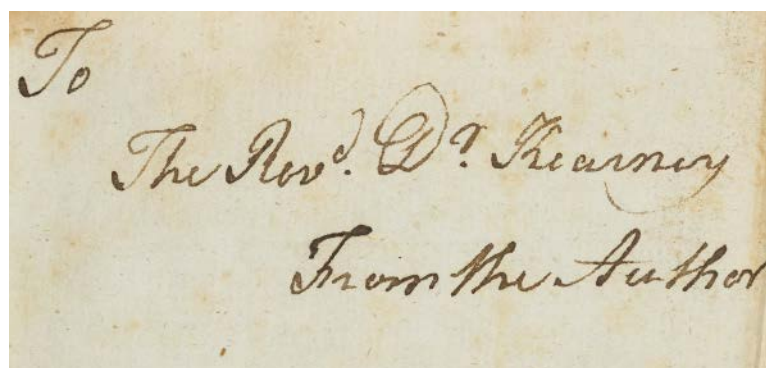 To
The Revd. Dr. Kearney
From the Author